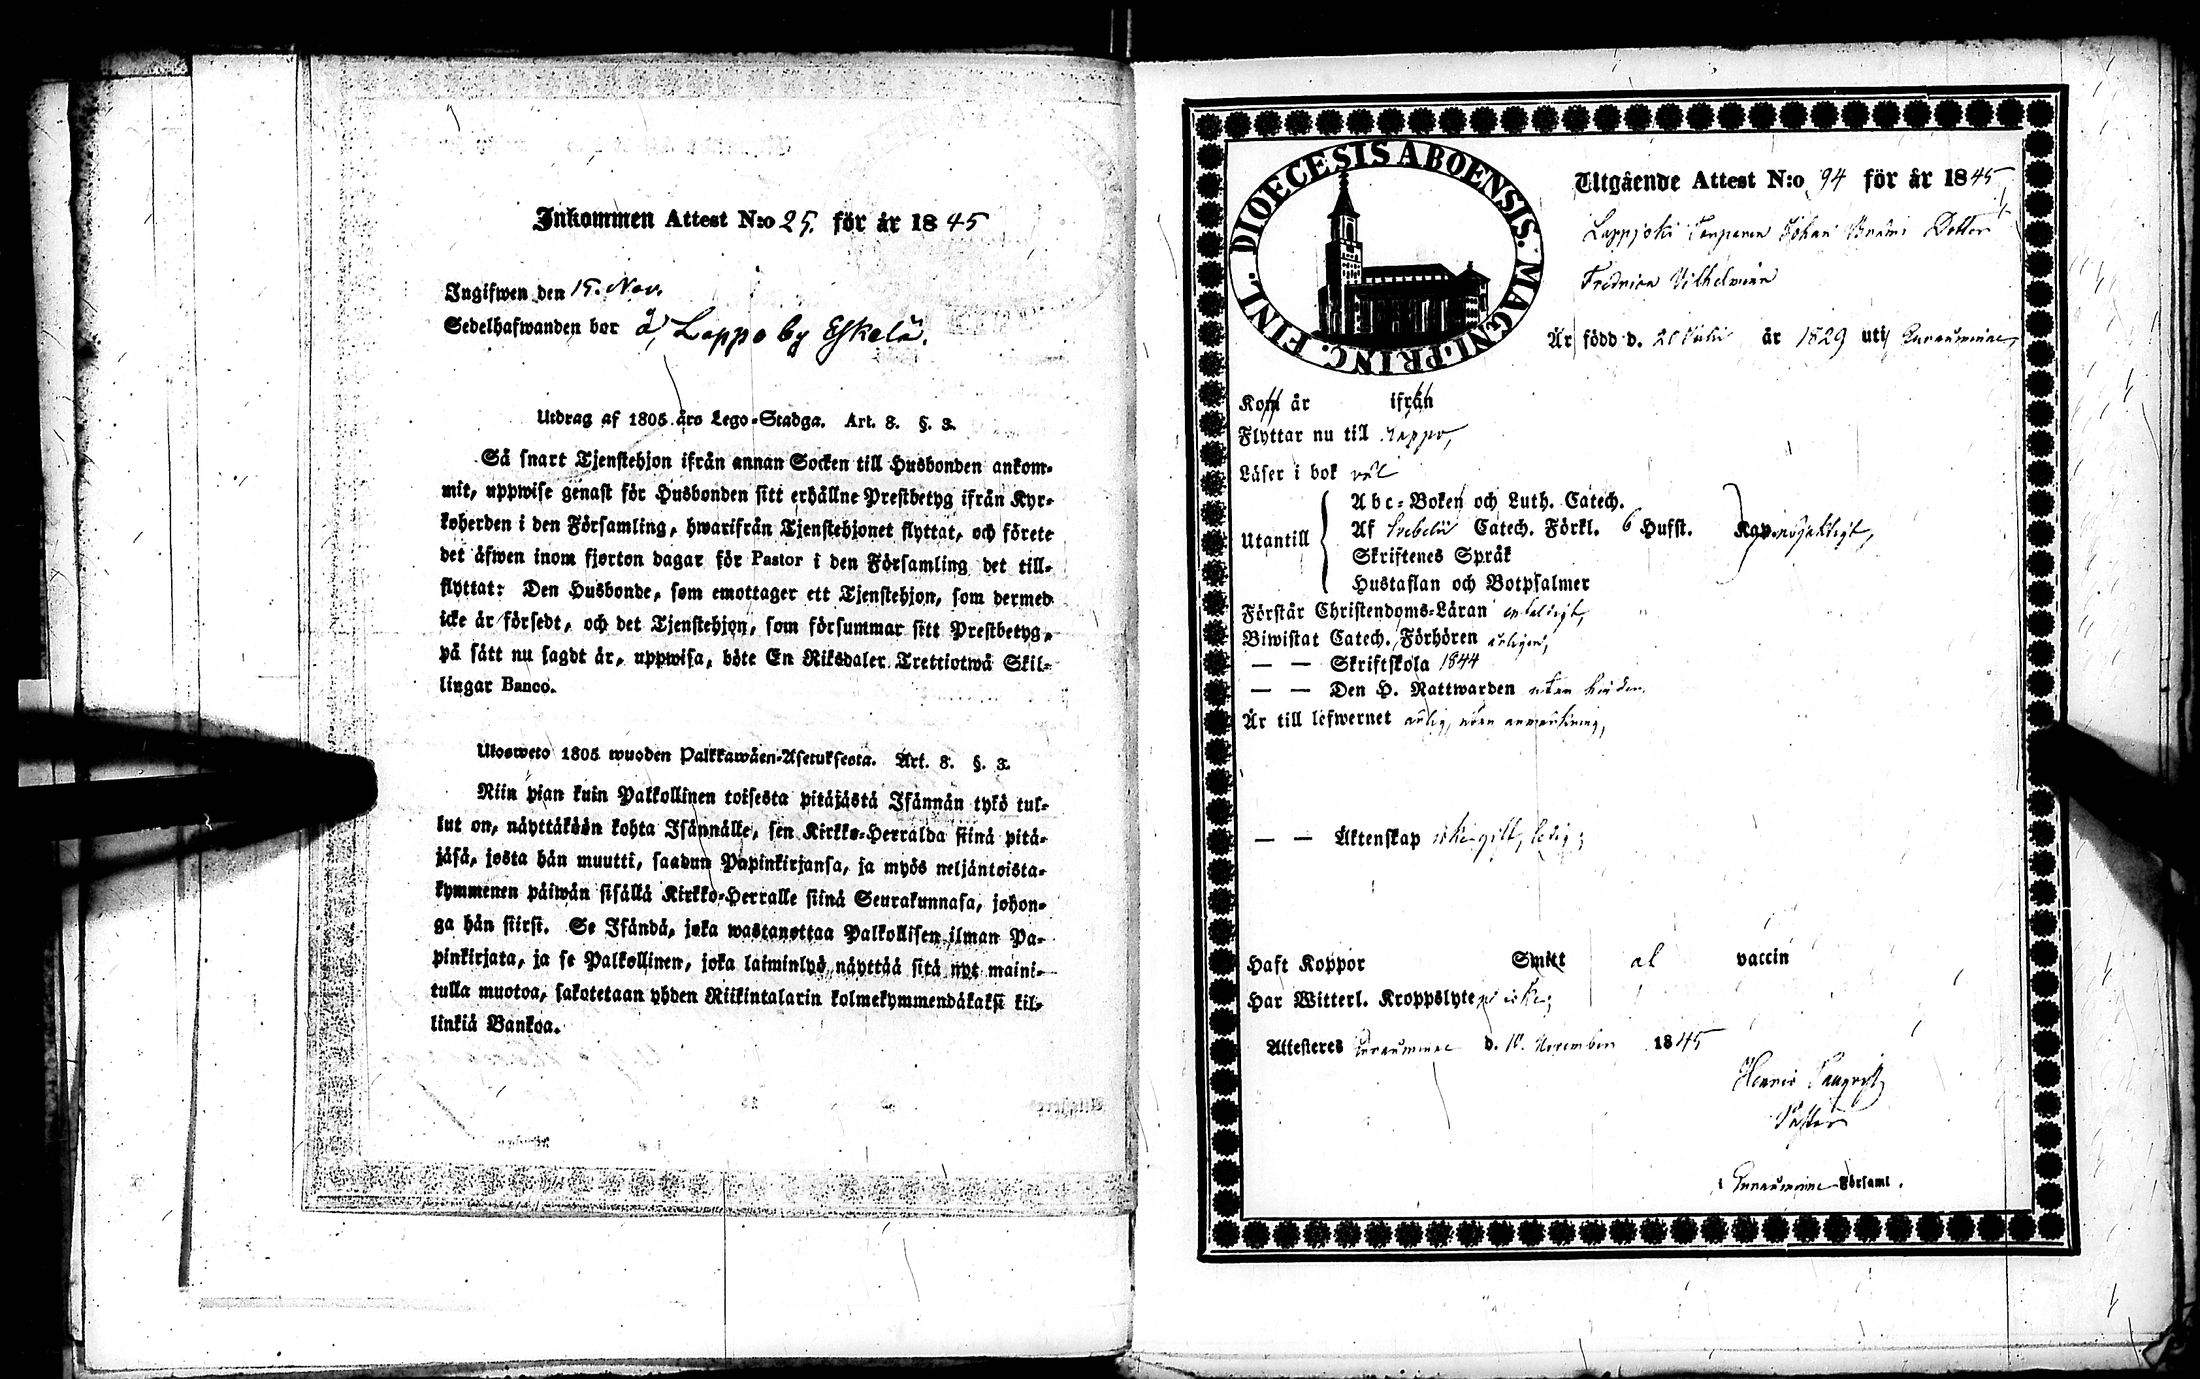 Inkommen Attest N:o 25. för år 1845
Ingifwen den 15. Nov.
Sedelhafwanden bor å Lappo by Eskelä.
Utdrag af 1805 års Lego-Stadga. Art. 8. §. 3.
Så snart Tjenstehjon ifrån annan Socken till Husbonden ankom-
mit, uppwise genast för Husbonden sitt erhållne Prestbetyg ifrån Kyr-
koherden i den Församling, hwarifrån Tjenstehjonet flyttat, och förete
det äfwen inom fjorton dagar för Pastor i den Församling det till-
flyttat: Den Husbonde, som emottager ett Tjenstehjon, som dermed
icke är försedt, och det Tjenstehjon, som försummar sitt Prestbetyg,
på sätt nu sagdt är, uppwisa, böte En Riksdaler Trettiotwå Skil-
lingar Banco.
Ulosweto 1805 wuoden Palkkawäen-Asetuksesta. Art. 8. §. 3.
Niin pian kuin Palkollinen toisesta pitäjästä Isännän tykö tul-
lut on, näyttäköön kohta Isännälle, sen Kirkko-Herralda siinä pitä-
jäsä, josta hän muutti, saadun Papinkirjansa, ja myös neljäntoista-
kymmenen päiwän sisällä Kirkko-Herralle siinä Seurakunnasa, johon-
ga hän siirsi. Se Isändä, joka wastanottaa Palkollisen ilman Pa-
pinkirjata, ja se Palkollinen, joka laiminlyö näyttää sitä nyt maini-
tulla muotoa, sakotetaan yhden Riikintalarin kolmekymmendäkaksi kil-
linkiä Bankoa.
DIOECESIS ABOENSIS. MAGNI. PRINC. FINL.
Utgående Attest N:o 94 för år 1845
Lappjoki Johan Dotter
Fredrica Vilhelmina
Är född d. 20 Julii år 1829 uti Euraåminne,
Kom år ifrån
Flyttar nu till Lappo,
Läser i bok väl
Abc-Boken och Luth. Catech.
Utantill Af Svebelii Catech. Förkl. 6 Hufst. Kap. nöjaktigt,
Skriftenes Språk
Hustaflan och Botpsalmer
Förstår Christendoms-Läran enfaldigt,
Biwistat Catech. Förhören årligen,
— — Skriftskola 1844
— — Den H. Nattwarden utan hinder.
Är till lefwernet ärlig, utan anmärkning,
— — Äktenskap icke gift, ledig;
Haft Koppor Smitt al vaccin
Har Witterl. Kroppslyte icke;
Attesteres Euraåminne d. 10. November 1845
Henric
Pastor
i Euraåminne Församl.